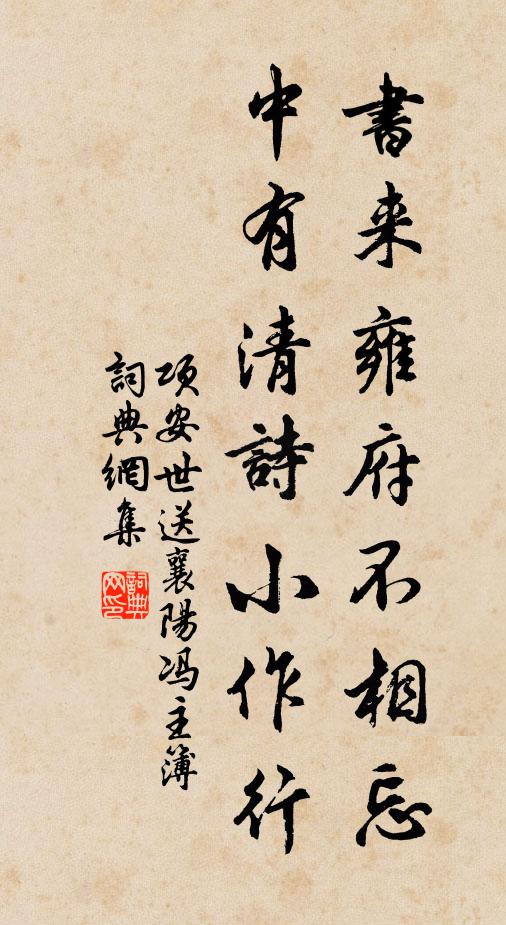 書来雍府不相忘
中有清詩小作行
项安世送襄陽冯主簿
詞典網集
詞典网印